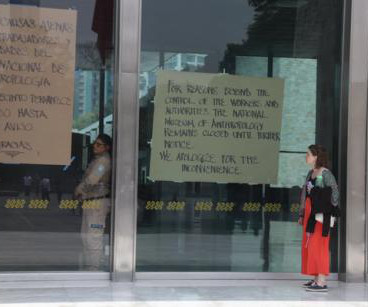 CAUSAS AJENAS
TRABAJADORES Y
DEL
NACIONAL DE
HASTA
AVISO.
GRACIAS
FOR REASONS BEYOND THE
CONTROL OF THE WORKERS AND
AUTHORITIES THE NATIONAL
MUSEUM OF ANTHROPOLOGY
REMAINS CLOSED UNTIL FURTHER
NOTICE.
WE APOLOGIZE FOR THE
INCONVENIENCE.